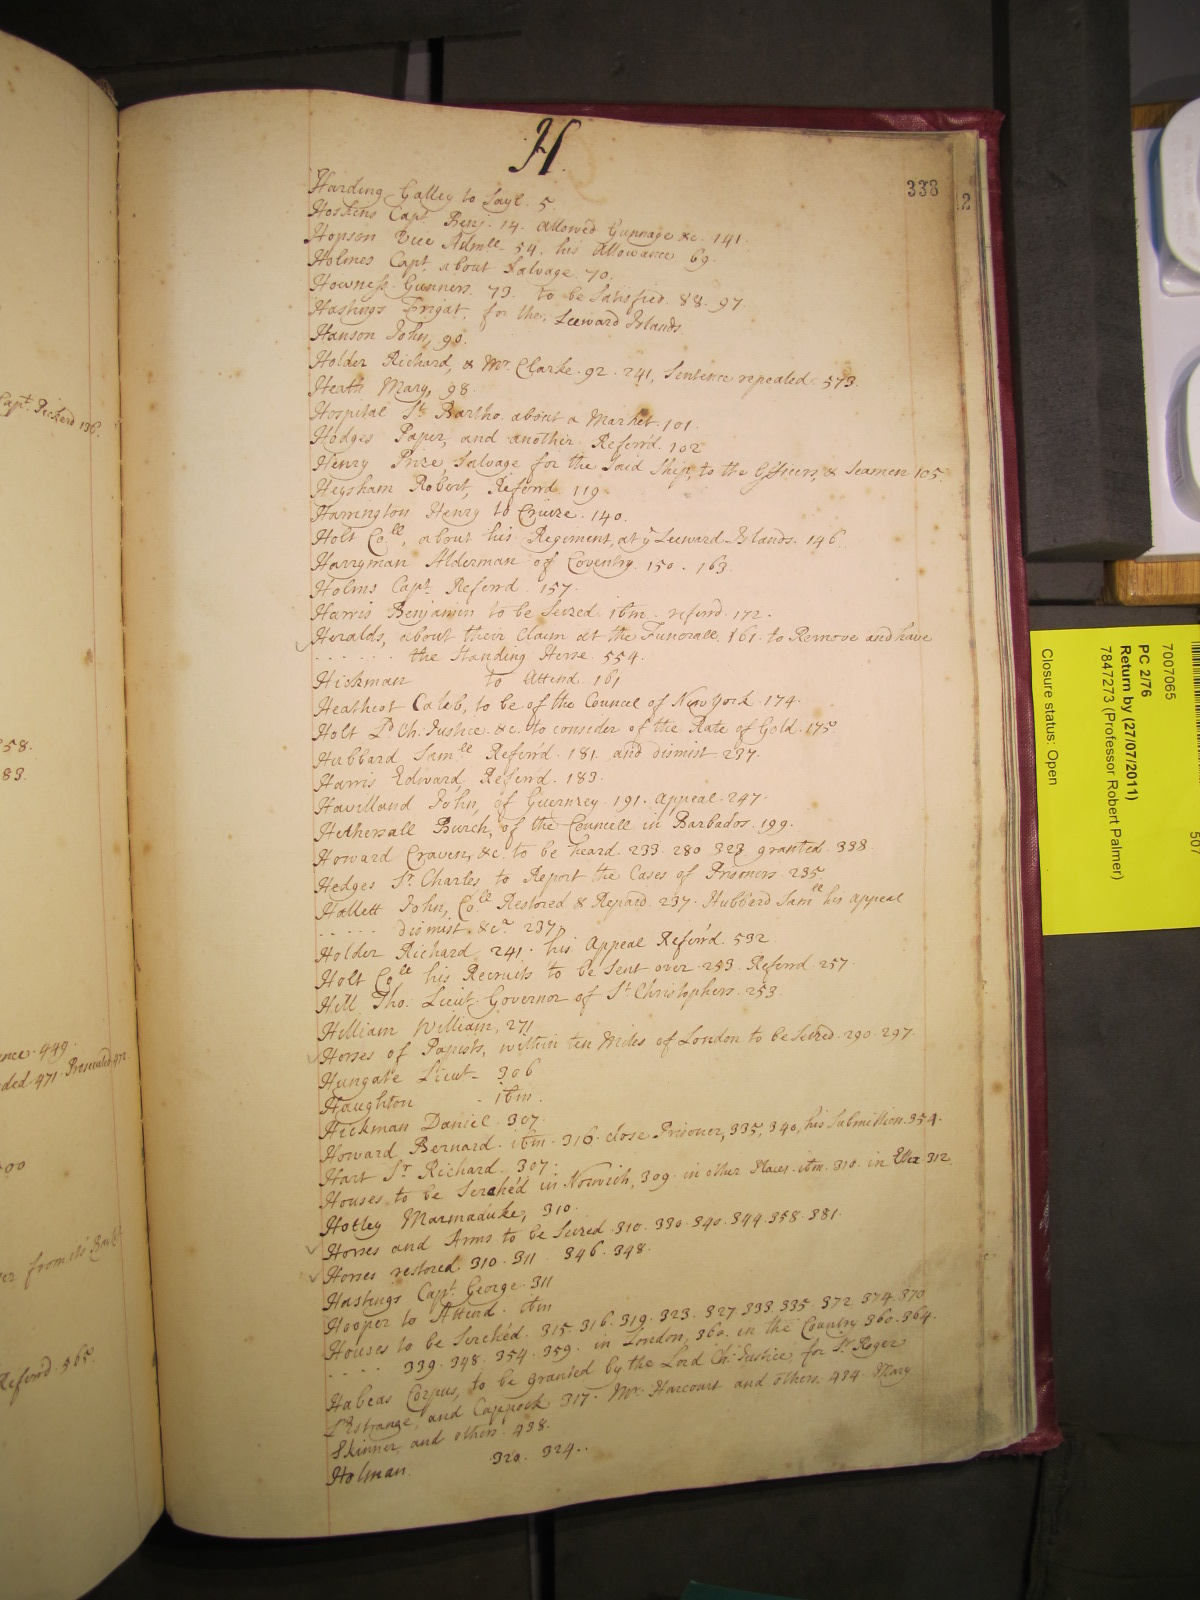 H.
338
2
Harding Galley to Sayl. 5.
Hoskins Capt. Benj. 14. allowed Gunnage &c. 141.
Hopson Vice Admll. 54. his Allowance 69.
Holmes Capt. about Salvage. 70.
Howness Gunners. 73. to be Satisfied. 88. 97.
Hastings Frigat, for the Leeward Islands.
Hanson John, 90.
Holder Richard, & Mr. Clarke. 92. 241, Sentence repealed. 573.
Heath Mary, 98.
Hospital St. Bartho. about a Market. 101.
Hodges Paper, and another Referrd. 102
Henry Prize, Salvage for the Said Ship, to the Officers, & Seamen 105.
Heysham Robert, Referrd 119.
Harrington Henry to Cruize. 140.
Holt Coll, about his Regiment, at ye Leeward Islands. 146.
Harryman Alderman of Coventry. 150. 163.
Holms Capt. Referrd. 157.
Harris Benjamin to be Seized. ibm. referrd. 172.
Heralds, about their Claim at the Funerall. 161. to Remove and have
. . . . . . the Standing Herse. 554.
Hickman to Attend. 161
Heathcot Caleb, to be of the Council of New York. 174.
Holt Ld Ch. Justice &c. to consider of the Rate of Gold. 175.
Hubbard Samll Referrd. 181. and dismist. 237.
Harris Edward, Referrd. 183.
Havilland John, of Guernsey. 191. Appeal. 247.
Hethersall Burch, of the Councell in Barbados. 199.
Howard Craven, &c. to be heard. 233. 280. 323. granted. 338.
Hedges Sr. Charles to Report the Cases of Prisoners. 235.
Hallett John, Coll Restored & Repard. 237. Hubberd Samll his appeal
. . . . . dismist. &ca. 237.
Holder Richard. 241. his Appeal Referrd. 532.
Holt Coll his Recruits to be Sent over. 253. Referrd. 257.
Hill Tho. Lieut. Governor of St. Christophers. 253.
Hilliam William, 271.
Horses of Papists, within ten Miles of London to be Seized. 290. 297.
Hungate Lieut. 306
Haughton . ibm.
Hickman Daniel. 307.
Howard Bernard. ibm. 316. close Prisoner, 335, 340, his Submission. 354.
Hart Sr Richard. 307.
Houses to be Serched in Norwich, 309. in other Places. ibm. 310. in 312
Hotley Marmaduke, 310.
Horses and Arms to be Seized. 310. 330. 340. 344. 358. 381.
Horses restored. 310. 311. 346. 348.
Hastings Capt. George. 311
Hooper to Attend. ibm
Houses to be Serched. 315. 316. 319. 323. 327. 333. 335. 372. 374. 370
. . . . 339. 348. 354. 359. in London, 360. in the Country 360. 364.
Habeas Corpus, to be granted by the Lord Ch. Justice, for Sr. Roger
L'Estrange, and Cappock 317. Mr. Harcourt and others. 434. Mary
Skinner, and others. 438.
Holman. 320. 324.
Capt. Pickerd 136.
58.
83.
449.
471.
Referrd. 565.
7007065
PC 2/76
Return by (27/07/2011)
7847273 (Professor Robert Palmer)
Closure status: Open